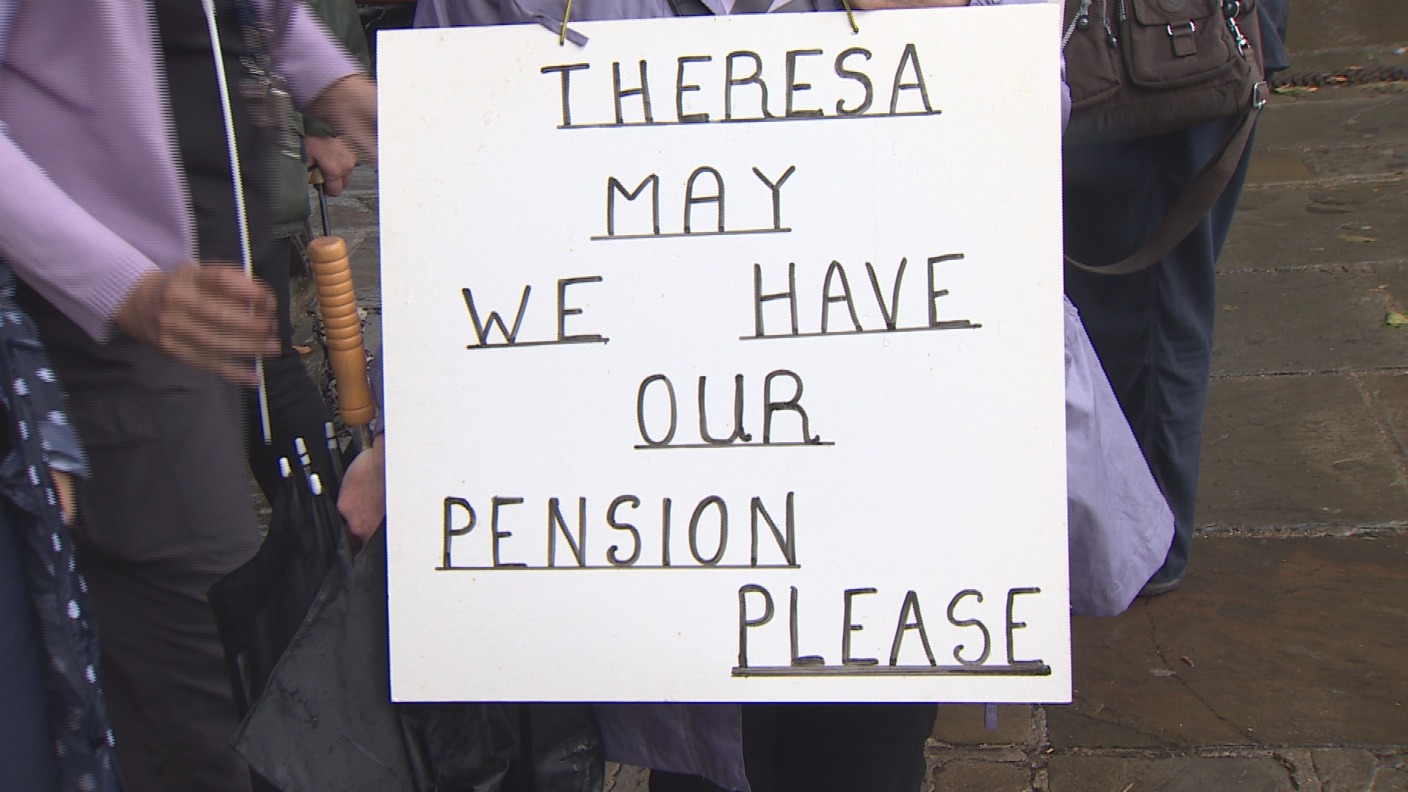 THERESA
MAY
WE HAVE
OUR
PENSION
PLEASE